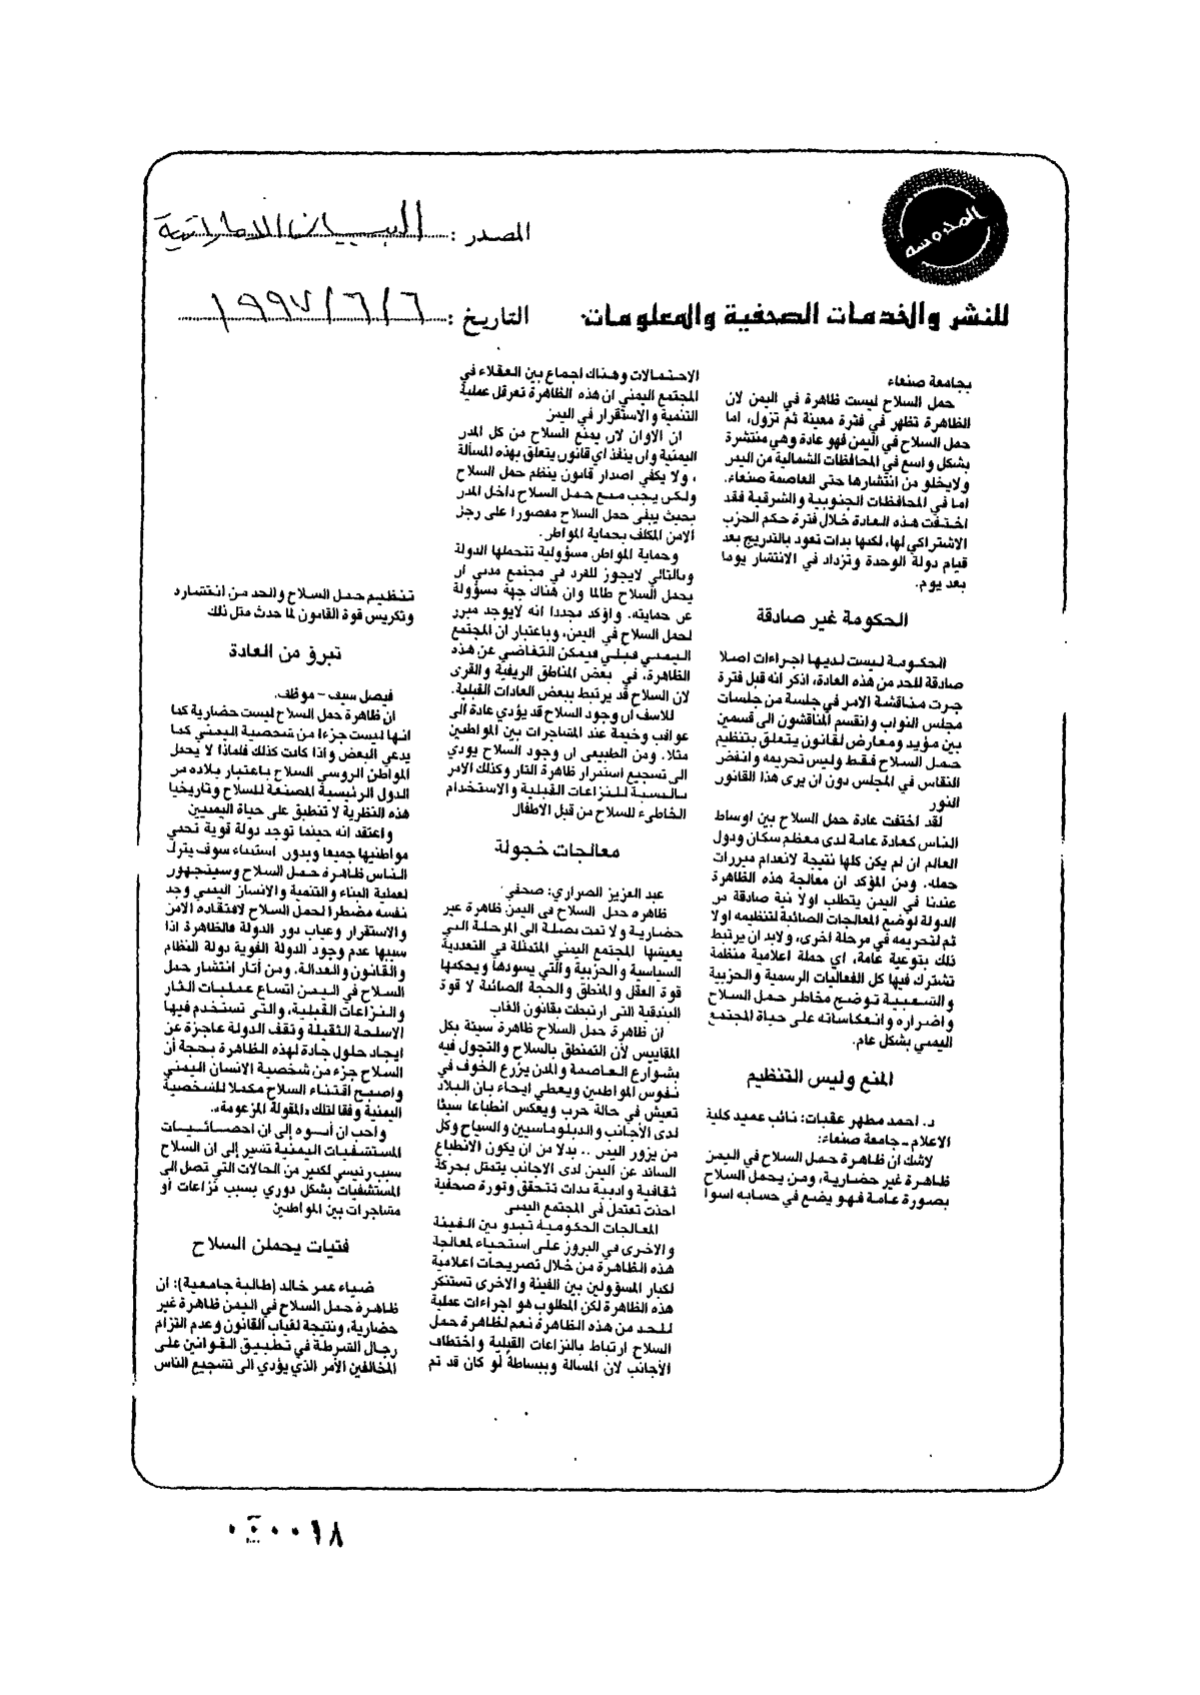 المحروسة
المصدر : البيان الاماراتية
للنشر والخدمات الصحفية والمعلومات
التاريخ : ١٩٩٧/٦/٦
بجامعة صنعاء
حمل السلاح ليست ظاهرة في اليمن لان
الظاهرة تظهر في فترة معينة ثم تزول، اما
حمل السلاح في اليمن فهو عادة وهي منتشرة
بشكل واسع في المحافظات الشمالية من اليمن
ولايخلو من انتشارها حتى العاصمة صنعاء.
اما في المحافظات الجنوبية والشرقية فقد
اختفت هذه العادة خلال فترة حكم الحزب
الاشتراكي لها، لكنها بدات تعود بالتدريج بعد
قيام دولة الوحدة وتزداد في الانتشار يوما
بعد يوم.
الحكومة غير صادقة
الحكومة ليست لديها اجراءات اصلا
صادقة للحد من هذه العادة، اذكر انه قبل فترة
جرت مناقشة الامر في جلسة من جلسات
مجلس النواب وانقسم المناقشون الى قسمين
بين مؤيد ومعارض لقانون يتعلق بتنظيم
حمل السلاح فقط وليس تحريمه وانفض
النقاس في المجلس دون ان يرى هذا القانون
النور
لقد اختفت عادة حمل السلاح بين اوساط
الناس كعادة عامة لدى معظم سكان ودول
العالم ان لم يكن كلها نتيجة لانعدام مبررات
حمله. ومن المؤكد ان معالجة هذه الظاهرة
عندنا في اليمن يتطلب اولا نية صادقة من
الدولة لوضع المعالجات الصائبة لتنظيمه اولا
ثم لتحريمه في مرحلة اخرى، ولابد ان يرتبط
ذلك بتوعية عامة، اي حملة اعلامية منظمة
تشترك فيها كل الفعاليات الرسمية والحزبية
والشعبية توضح مخاطر حمل السلاح
واضراره وانعكاساته على حياة المجتمع
اليمني بشكل عام.
المنع وليس التنظيم
د. احمد مطهر عقبات: نائب عميد كلية
الاعلام ـ جامعة صنعاء:
لاشك ان ظاهرة حمل السلاح في اليمن
ظاهرة غير حضارية، ومن يحمل السلاح
بصورة عامة فهو يضع في حسابه اسوا
الاحتمالات وهناك اجماع بين العقلاء في
المجتمع اليمني ان هذه الظاهرة تعرقل عملية
التنمية والاستقرار في اليمن
ان الاوان لان يمنع السلاح من كل المدن
اليمنية وان ينفذ اي قانون يتعلق بهذه المسألة
، ولا يكفي اصدار قانون ينظم حمل السلاح
ولكن يجب منع حمل السلاح داخل المدن
بحيث يبقى حمل السلاح مقصورا على رجل
الامن المكلف بحماية المواطن.
وحماية المواطن مسؤولية تتحملها الدولة
وبالتالي لايجوز للفرد في مجتمع مدني ان
يحمل السلاح طالما وان هناك جهة مسؤولة
عن حمايته. واؤكد مجددا انه لايوجد مبرر
لحمل السلاح في اليمن، وباعتبار ان المجتمع
اليمني قبلي فيمكن التغاضي عن هذه
الظاهرة، في بعض المناطق الريفية والقرى
لان السلاح قد يرتبط ببعض العادات القبلية.
للاسف ان وجود السلاح قد يؤدي عادة الى
عواقب وخيمة عند المشاجرات بين المواطنين
مثلا. ومن الطبيعي ان وجود السلاح يودي
الى تسجيع استمرار ظاهرة الثار وكذلك الامر
بالنسبة للنزاعات القبلية والاستخدام
الخاطىء للسلاح من قبل الاطفال
معالجات خجولة
عبد العزيز الصراري: صحفي
ظاهره حمل السلاح في اليمن ظاهرة غير
حضارية ولا تمت بصلة الى المرحلة التي
يعيشها المجتمع اليمني المتمثلة في التعددية
السياسية والحزبية والتي يسودها ويحكمها
قوة العقل والمنطق والحجة الصائبة لا قوة
البندقية التى ارتبطت بقانون الغاب
ان ظاهرة حمل السلاح ظاهرة سيئة بكل
المقاييس لأن التمنطق بالسلاح والتجول فيه
بشوارع العاصمة والمدن يزرع الخوف في
نفوس المواطنين ويعطي ايحاء بان البلاد
تعيش في حالة حرب ويعكس انطباعا سيئا
لدى الأجانب والدبلوماسيين والسياح وكل
من يزور اليمن .. بدلا من ان يكون الانطباع
السائد عن اليمن لدى الاجانب يتمثل بحركة
ثقافية وادبية بدات تتحقق وثورة صحفية
احذت تعتمل في المجتمع اليمني
المعالجات الحكومية تبدو بين الفينة
والاخرى في البروز على استحياء لمعالجة
هذه الظاهرة من خلال تصريحات اعلامية
لكبار المسؤولين بين الفينة والاخرى تستنكر
هذه الظاهرة لكن المطلوب هو اجراءات عملية
للحد من هذه الظاهرة نعم لظاهرة حمل
السلاح ارتباط بالنزاعات القبلية واختطاف
الأجانب لان المسالة وببساطة لو كان قد تم
تنظيم حمل السلاح والحد من انتشاره
وتكريس قوة القانون لما حدث مثل ذلك
تبرؤ من العادة
فيصل سيف – موظف.
ان ظاهرة حمل السلاح ليست حضارية كما
انها ليست جزءا من شخصية اليمني كما
يدعي البعض واذا كانت كذلك فلماذا لا يحمل
المواطن الروسي السلاح باعتبار بلاده من
الدول الرئيسية المصنعة للسلاح وتاريخيا
هذه النظرية لا تنطبق على حياة اليمنيين
واعتقد انه حينما توجد دولة قوية تحمي
مواطنيها جميعا وبدون استثناء سوف يترك
الناس ظاهرة حمل السلاح وسيتجهون
لعملية البناء والتنمية والانسان اليمني وجد
نفسه مضطرا لحمل السلاح لافتقاده الامن
والاستقرار وغياب دور الدولة فالظاهرة اذا
سببها عدم وجود الدولة القوية دولة النظام
والقانون والعدالة. ومن أثار انتشار حمل
السلاح في اليمن اتساع عمليات الثار
والنزاعات القبلية، والتى تستخدم فيها
الاسلحة الثقيلة وتقف الدولة عاجزة عن
ايجاد حلول جادة لهذه الظاهرة بحجة أن
السلاح جزء من شخصية الانسان اليمني
واصبح اقتناء السلاح مكملا للشخصية
اليمنية وفقا لتلك «المقولة المزعومة».
واحب ان أنوه إلى ان احصائيات
المستشفيات اليمنية تشير إلى ان السلاح
سبب رئيسي لكثير من الحالات التي تصل الى
المستشفيات بشكل دوري بسبب نزاعات أو
مشاجرات بين المواطنين
فتيات يحملن السلاح
ضياء عمر خالد (طالبة جامعية): ان
ظاهرة حمل السلاح في اليمن ظاهرة غير
حضارية، ونتيجة لغياب القانون وعدم التزام
رجال الشرطة في تطبيق القوانين على
المخالفين الأمر الذي يؤدي الى تشجيع الناس